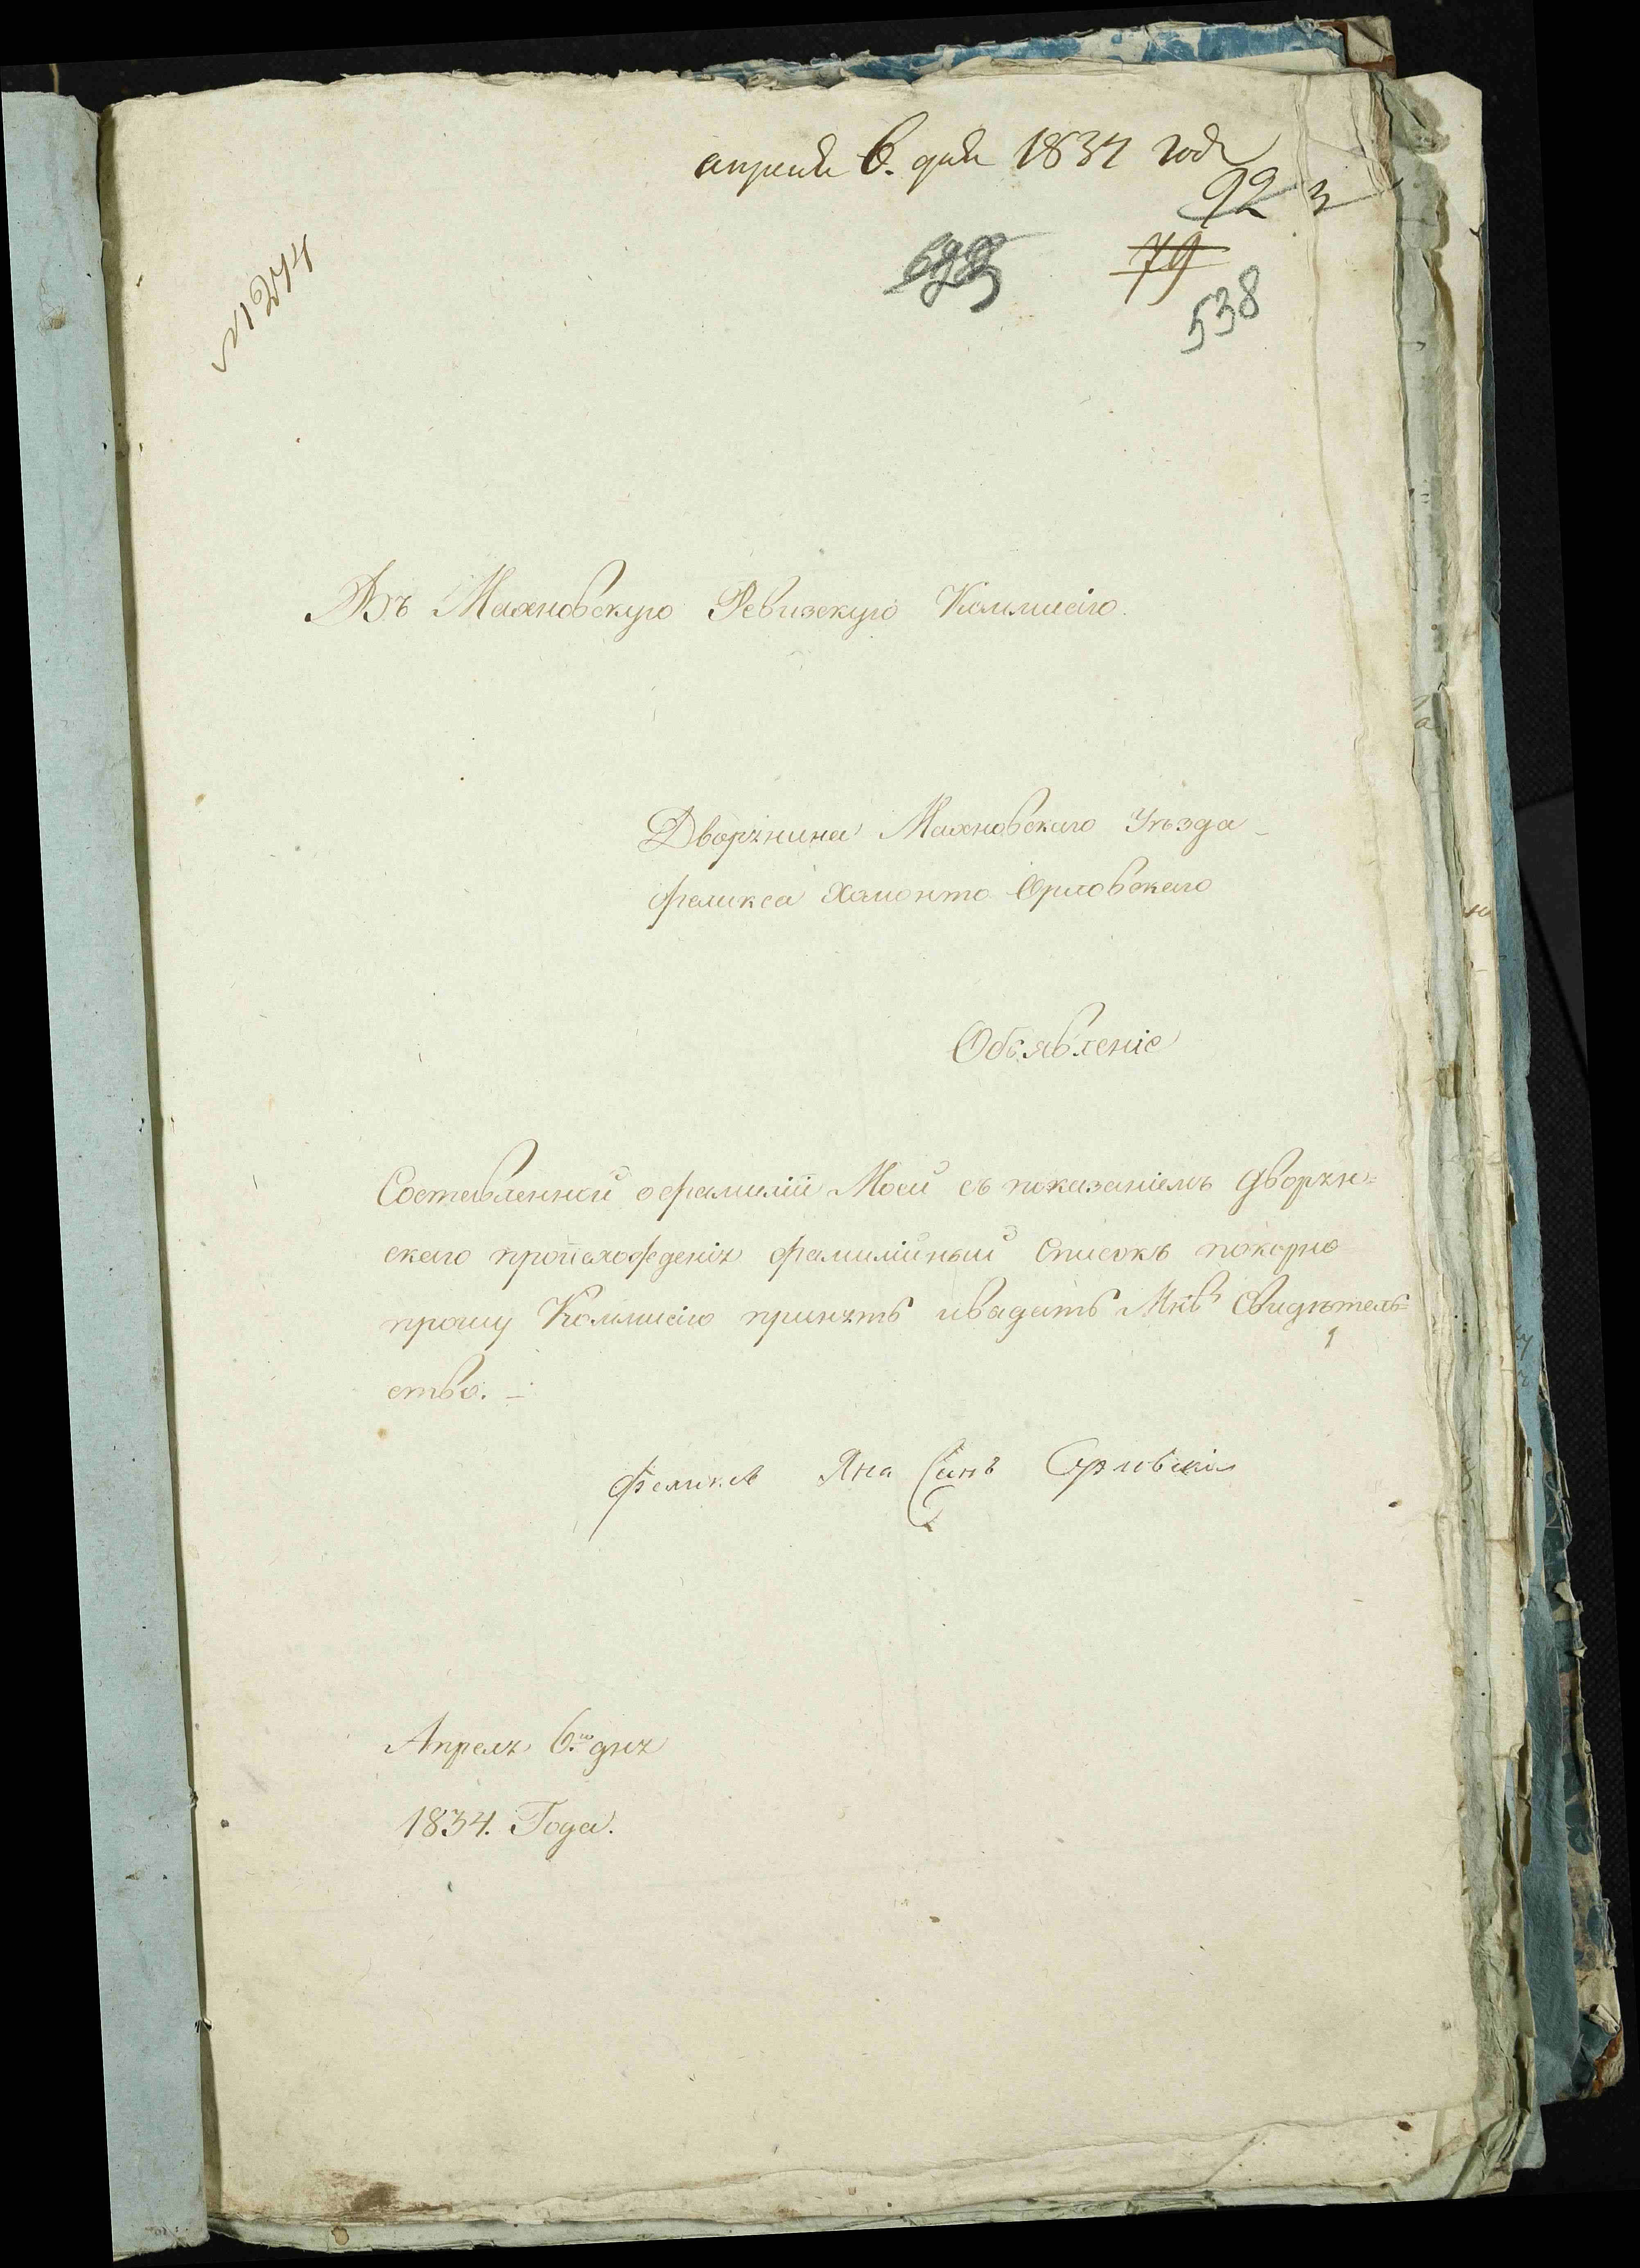 апреля 6. дня 1834 года
92 3
79
538
№ 1274
Въ Махновскую Ревизскую Коммисію.
Дворянина Махновскаго Уѣзда
Феликса Хомонто Орловскаго
Объявленіе
Составленной о фамиліи Моей съ показаніемъ Дворян=
скаго произхожденія фамилійный Списокъ покорно
прошу Коммисію принять и выдать Мнѣ Свидѣтель=
ство.
Феликсъ Яна Сынъ Орловскій
Апреля 6.го дня
1834. Года.